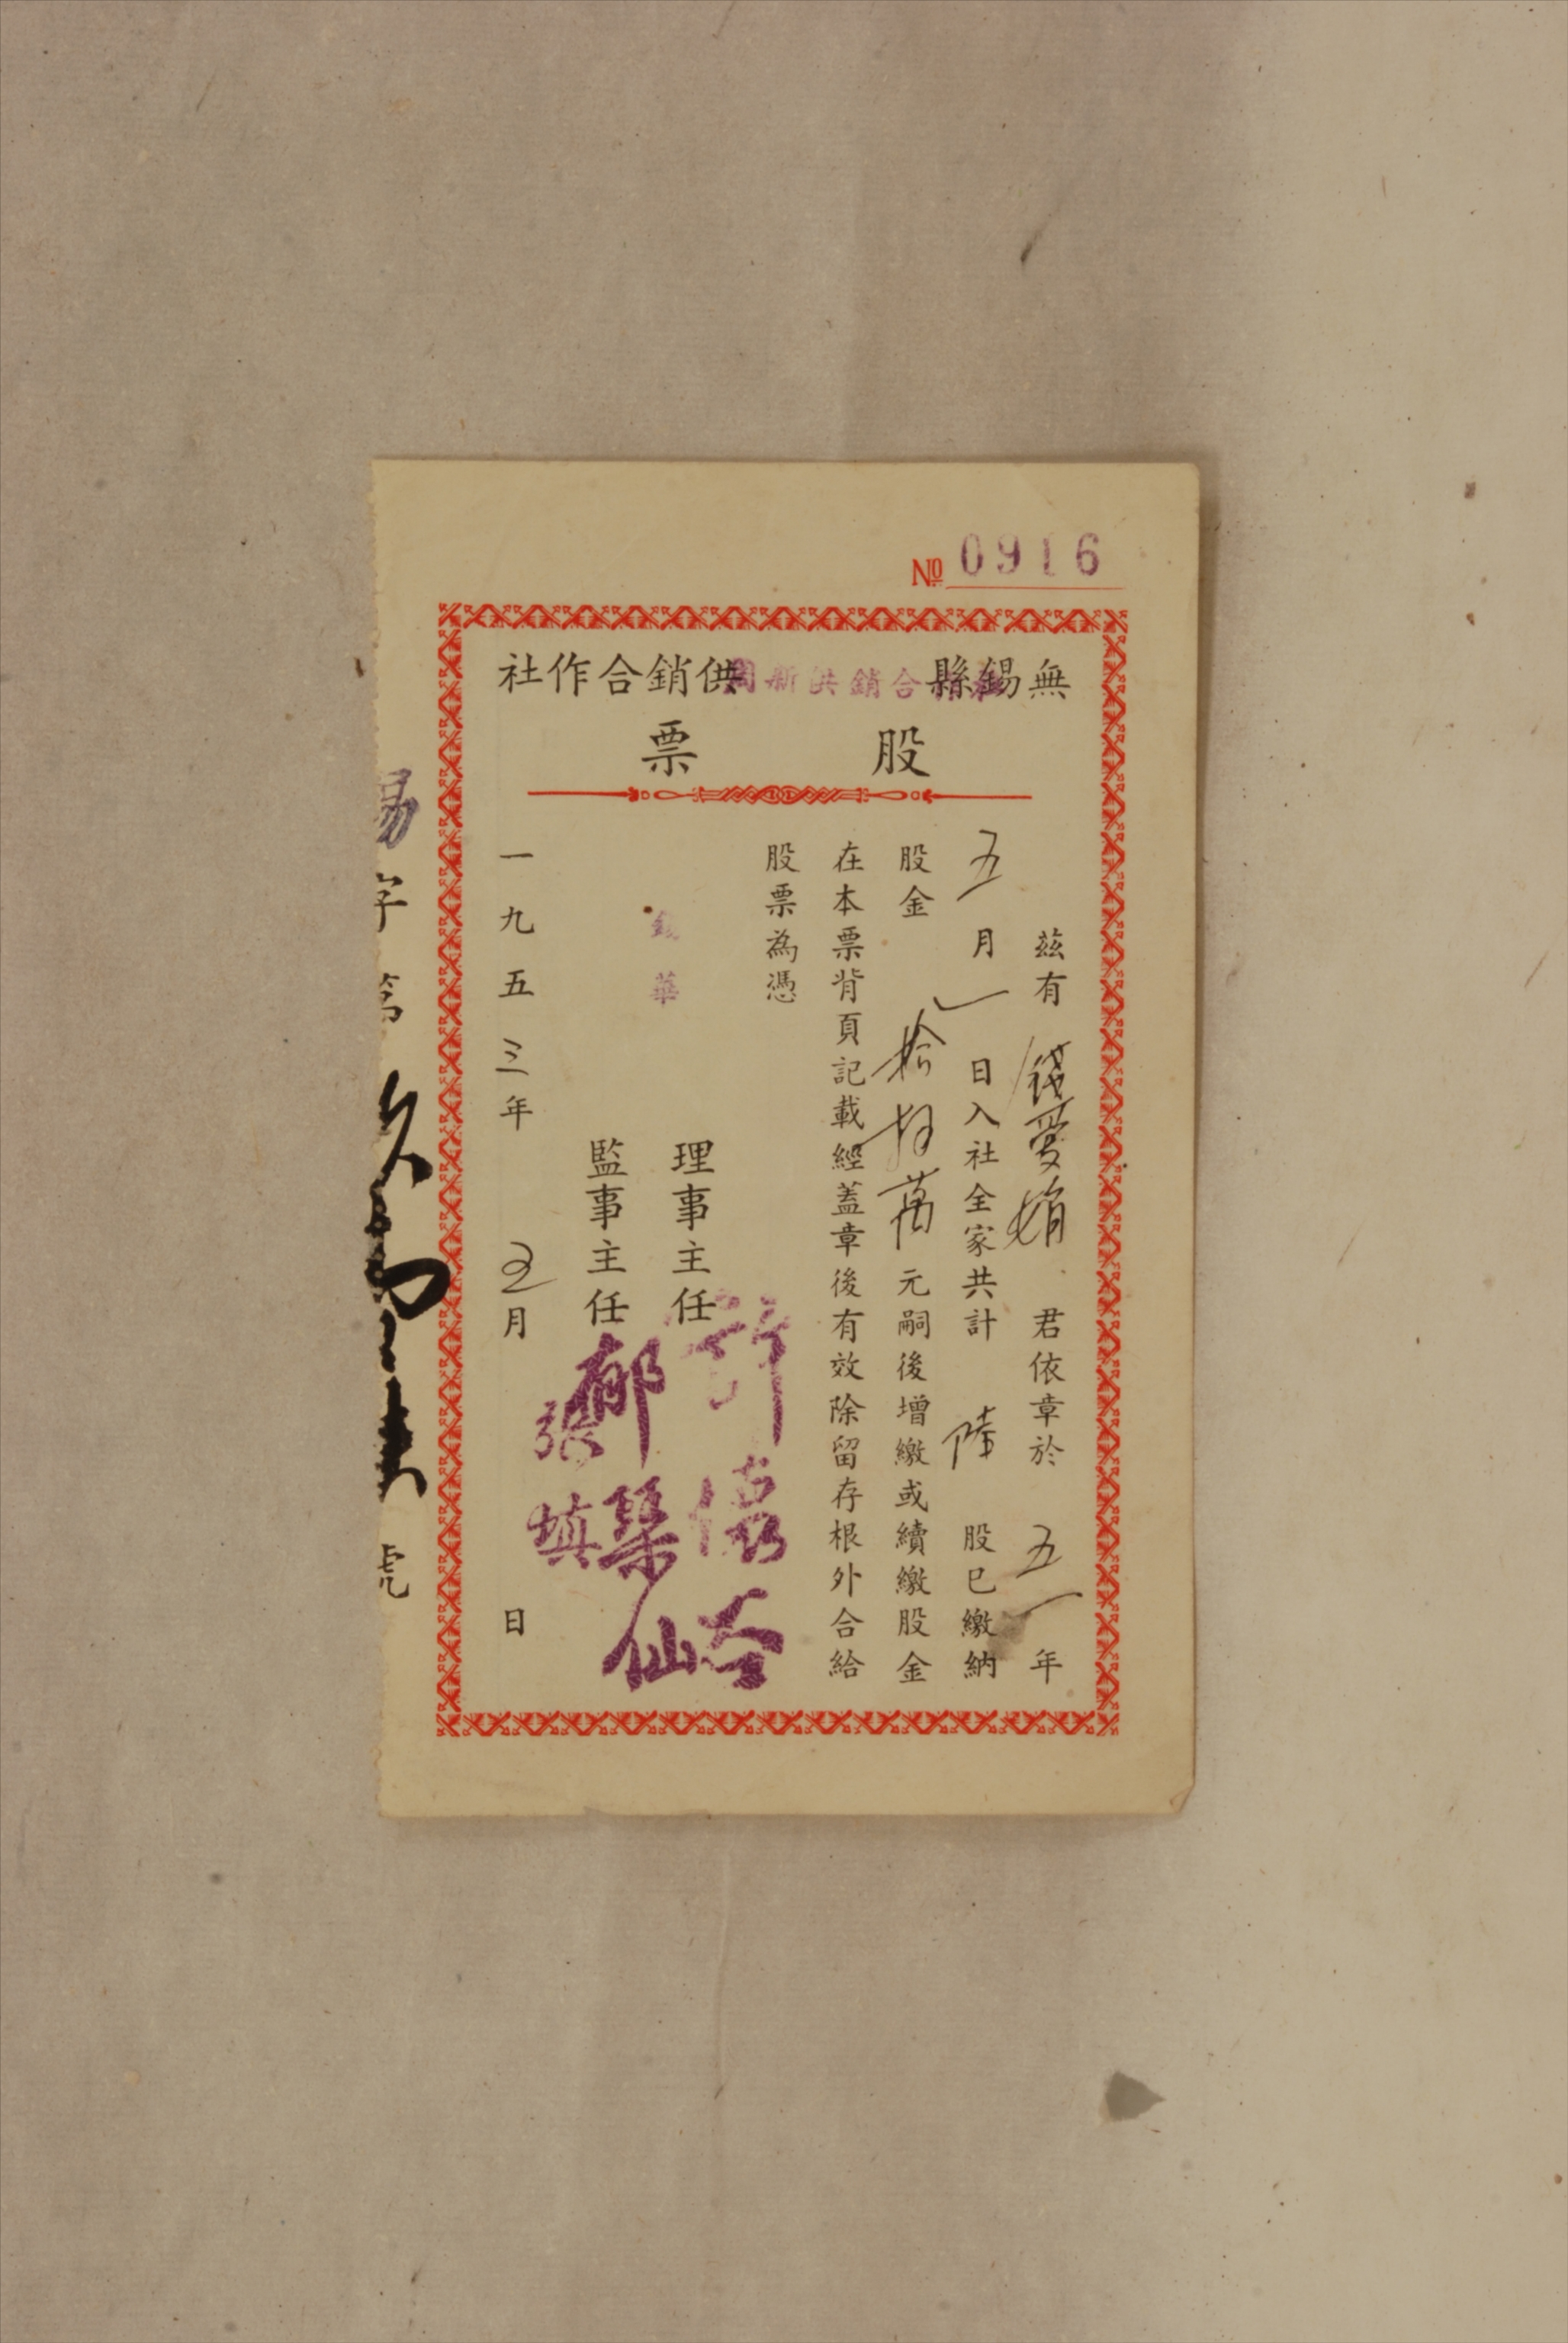 № 0916
無錫縣周新供銷合作社供銷合作社
股票
茲有錢愛娟君依章於五一年
五月一日入社全家共計陸股已繳納
股金拾捌萬元嗣後增繳或續繳股金
在本票背頁記載經蓋章後有效除留存根外合給
股票為憑
理事主任許
監事主任郁琹仙
張填
一九五三年五月 日
錫字第 號